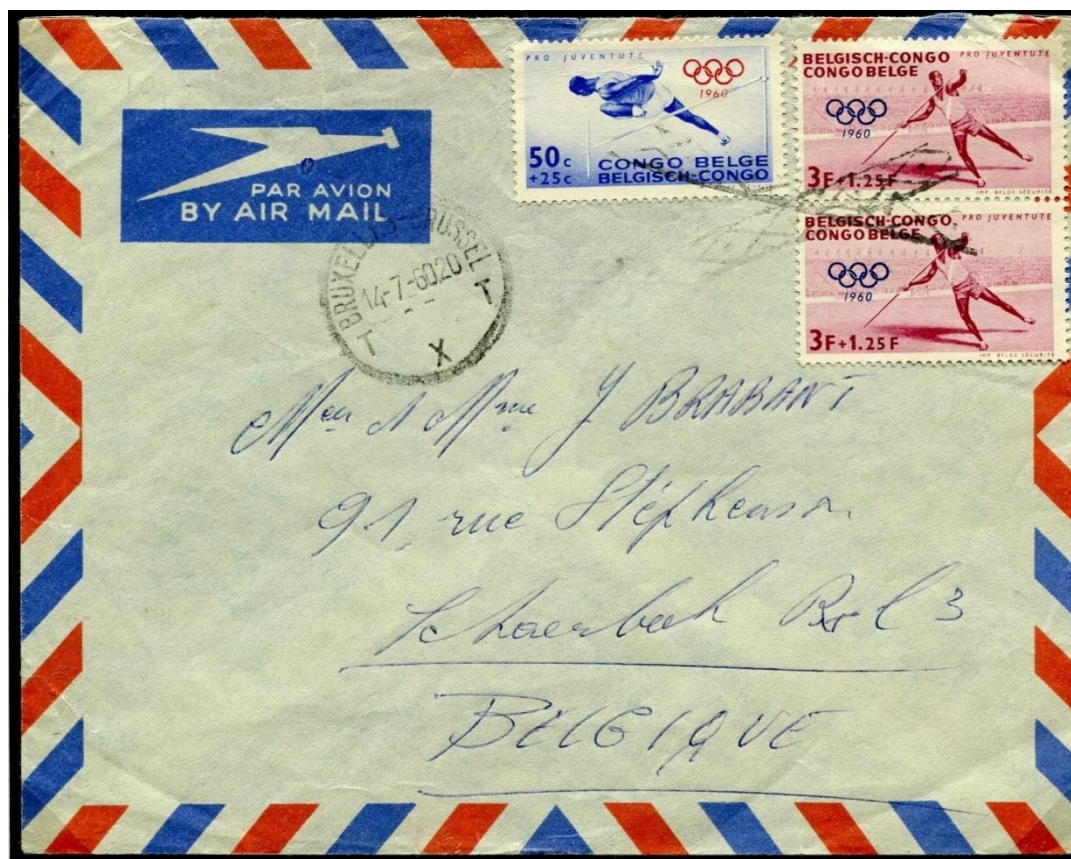 PRO JUVENTUTE
1960
50c
+25c
CONGO BELGE
BELGISCH-CONGO
BELGISCH-CONGO
CONGO BELGE
PRO JUVENTUTE
1960
3F+1.25F
IMP. BELGE SÉCURITÉ
BELGISCH-CONGO
CONGO BELGE
PRO JUVENTUTE
1960
3F+1.25F
IMP. BELGE SÉCURITÉ
PAR AVION
BY AIR MAIL
BRUXELLES-BRUSSEL
14-7-60 20
T X T
Mme J BRABANT
91, rue Stéphenson
Schaerbeek Bxl 3
BELGIQUE